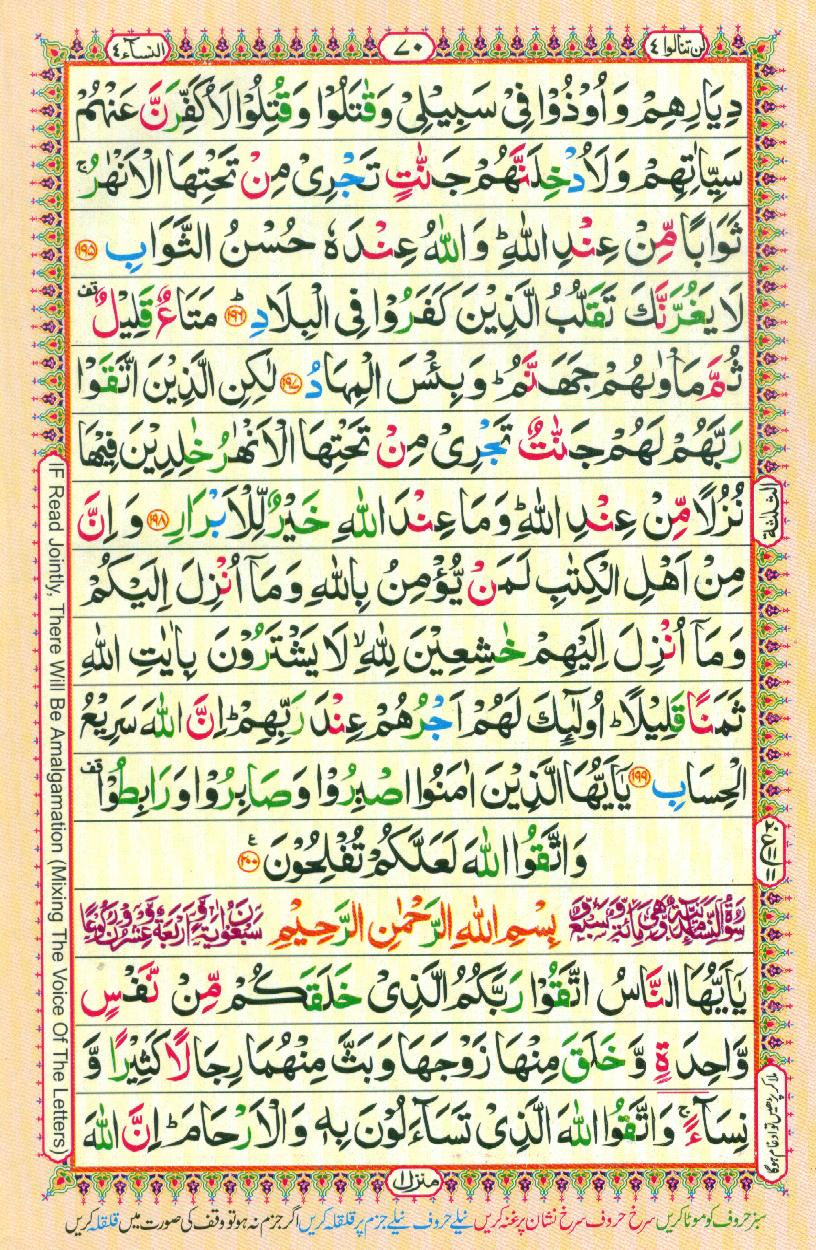 لن تنالوا ٤
٧٠
النسآء ٤
دِيَارِهِمْ وَاُوْذُوْا فِیْ سَبِيْلِیْ وَقٰتَلُوْا وَقُتِلُوْا لَاُكَفِّرَنَّ عَنْهُمْ
سَيِّاٰتِهِمْ وَلَاُدْخِلَنَّهُمْ جَنّٰتٍ تَجْرِیْ مِنْ تَحْتِهَا الْاَنْهٰرُ ۚ
ثَوَابًا مِّنْ عِنْدِ اللّٰهِ ؕ وَاللّٰهُ عِنْدَهٗ حُسْنُ الثَّوَابِ ۝۱۹۵
لَا يَغُرَّنَّكَ تَقَلُّبُ الَّذِيْنَ كَفَرُوْا فِی الْبِلَادِ ۝۱۹۶ؕ مَتَاعٌ قَلِيْلٌ قف
ثُمَّ مَاْوٰىهُمْ جَهَنَّمُ ؕ وَبِئْسَ الْمِهَادُ ۝۱۹۷ لٰكِنِ الَّذِيْنَ اتَّقَوْا
رَبَّهُمْ لَهُمْ جَنّٰتٌ تَجْرِیْ مِنْ تَحْتِهَا الْاَنْهٰرُ خٰلِدِيْنَ فِيْهَا
نُزُلًا مِّنْ عِنْدِ اللّٰهِ ؕ وَمَا عِنْدَ اللّٰهِ خَيْرٌ لِّلْاَبْرَارِ ۝۱۹۸ وَاِنَّ
مِنْ اَهْلِ الْكِتٰبِ لَمَنْ يُّؤْمِنُ بِاللّٰهِ وَمَاۤ اُنْزِلَ اِلَيْكُمْ
وَمَاۤ اُنْزِلَ اِلَيْهِمْ خٰشِعِيْنَ لِلّٰهِ ۙ لَا يَشْتَرُوْنَ بِاٰيٰتِ اللّٰهِ
ثَمَنًا قَلِيْلًا ؕ اُولٰٓئِكَ لَهُمْ اَجْرُهُمْ عِنْدَ رَبِّهِمْ ؕ اِنَّ اللّٰهَ سَرِيْعُ
الْحِسَابِ ۝۱۹۹ يٰۤاَيُّهَا الَّذِيْنَ اٰمَنُوا اصْبِرُوْا وَصَابِرُوْا وَرَابِطُوْا قف
وَاتَّقُوا اللّٰهَ لَعَلَّكُمْ تُفْلِحُوْنَ ۝۲۰۰ ع
بِسْمِ اللّٰهِ الرَّحْمٰنِ الرَّحِيْمِ
يٰۤاَيُّهَا النَّاسُ اتَّقُوْا رَبَّكُمُ الَّذِیْ خَلَقَكُمْ مِّنْ نَّفْسٍ
وَّاحِدَةٍ وَّخَلَقَ مِنْهَا زَوْجَهَا وَبَثَّ مِنْهُمَا رِجَالًا كَثِيْرًا وَّ
نِسَآءً ۚ وَاتَّقُوا اللّٰهَ الَّذِیْ تَسَآءَلُوْنَ بِهٖ وَالْاَرْحَامَ ؕ اِنَّ اللّٰهَ
الثلثة
ملا کر پڑھیں تو ادغام ہوگا
IF Read Jointly, There Will Be Amalgamation (Mixing The Voice Of The Letters)
منزل ۱
سبز حروف کو موٹا کریں سرخ حروف سرخ نشان پر غنہ کریں نیلے حروف نیلے جزم پر قلقلہ کریں اگر جزم نہ ہو تو وقف کی صورت میں قلقلہ کریں